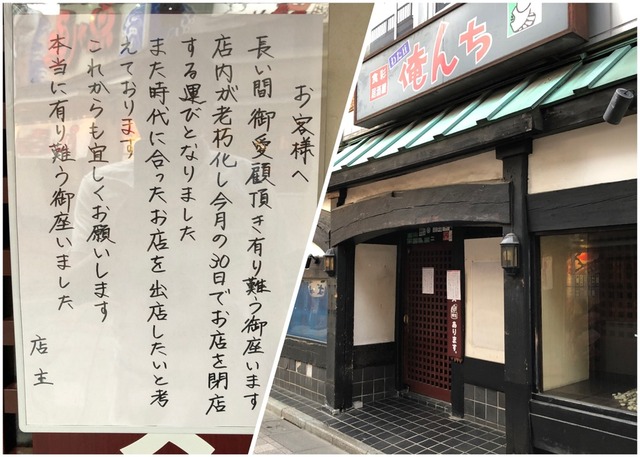 お客様へ
長い間御愛顧頂き有り難う御座います
店内が老朽化し今月の30日でお店を閉店
する運びとなりました
また時代に合ったお店を出店したいと考
えております
これからも宜しくお願いします
本当に有り難う御座いました
店主
俺んち
あります。